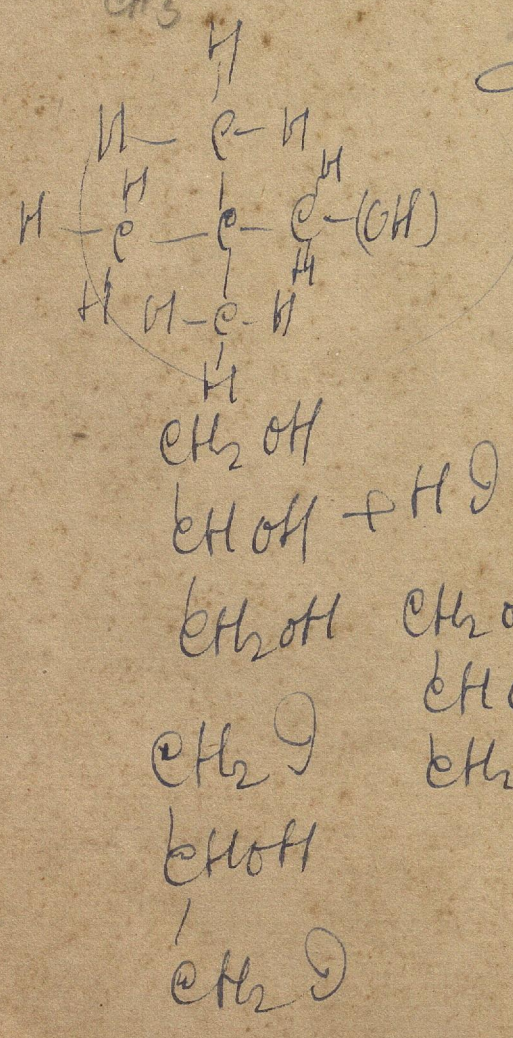 CH3
H
H - C - H
H H
H - C - C - C - (OH)
H H
H - C - H
H
CH2 OH
CH OH + HJ
CH2OH CH2 O
CH
CH2 J CH2
CHOH
CH2 J